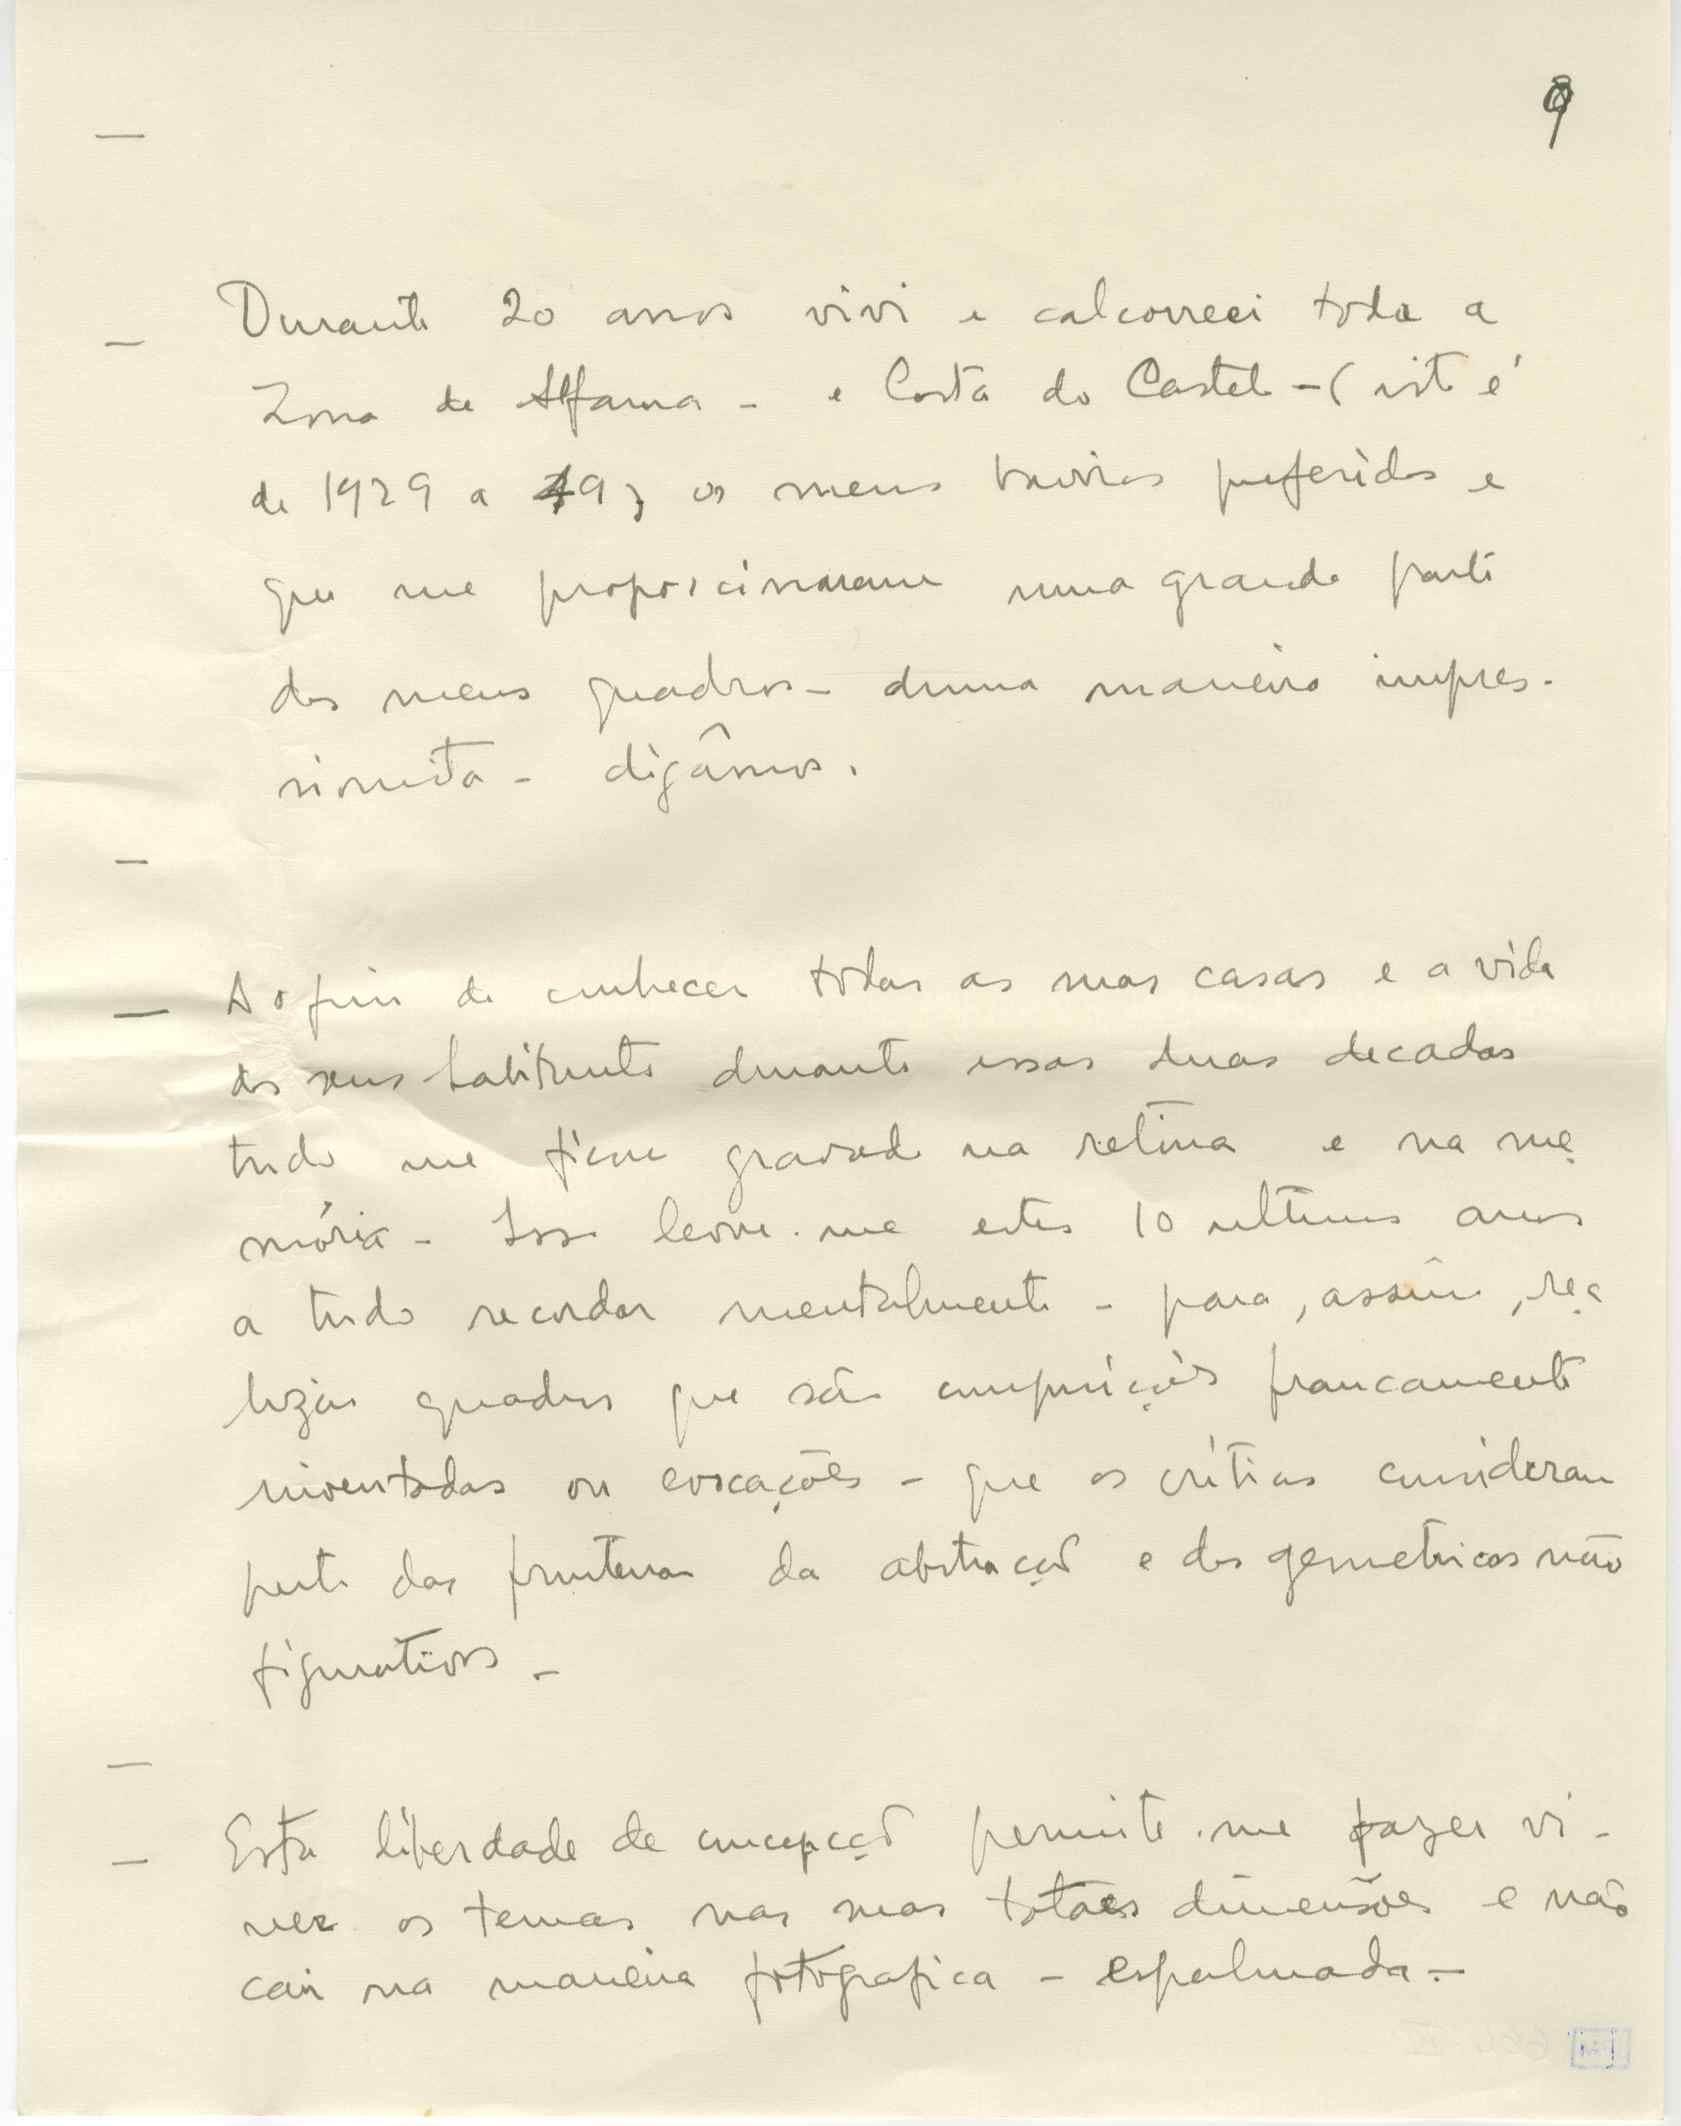 9
Durante 20 anos vivi e calcorreei toda a
Zona de Alfama - e Costa do Castelo - (isto é
de 1929 a 49) os meus bairros preferidos e
que me proporcionaram uma grande parte
dos meus quadros - duma maneira impres-
sionista - digâmos.
Ao fim de conhecer todas as suas casas e a vida
dos seus habitantes durante essas duas decadas
tudo me ficou gravado na retina e na me-
mória - Isso levou-me estes 10 ultimos anos
a tudo recordar mentalmente - para, assim, rea-
lizar quadros que são composições francamente
inventadas ou evocações - que os críticos consideram
perto das fronteiras da abstracção e dos geometricos não
figurativos -
Esta liberdade de concepção permite-me fazer vi-
ver os temas nas suas totaes dimensões e não
cair na maneira fotografica - espalmada -